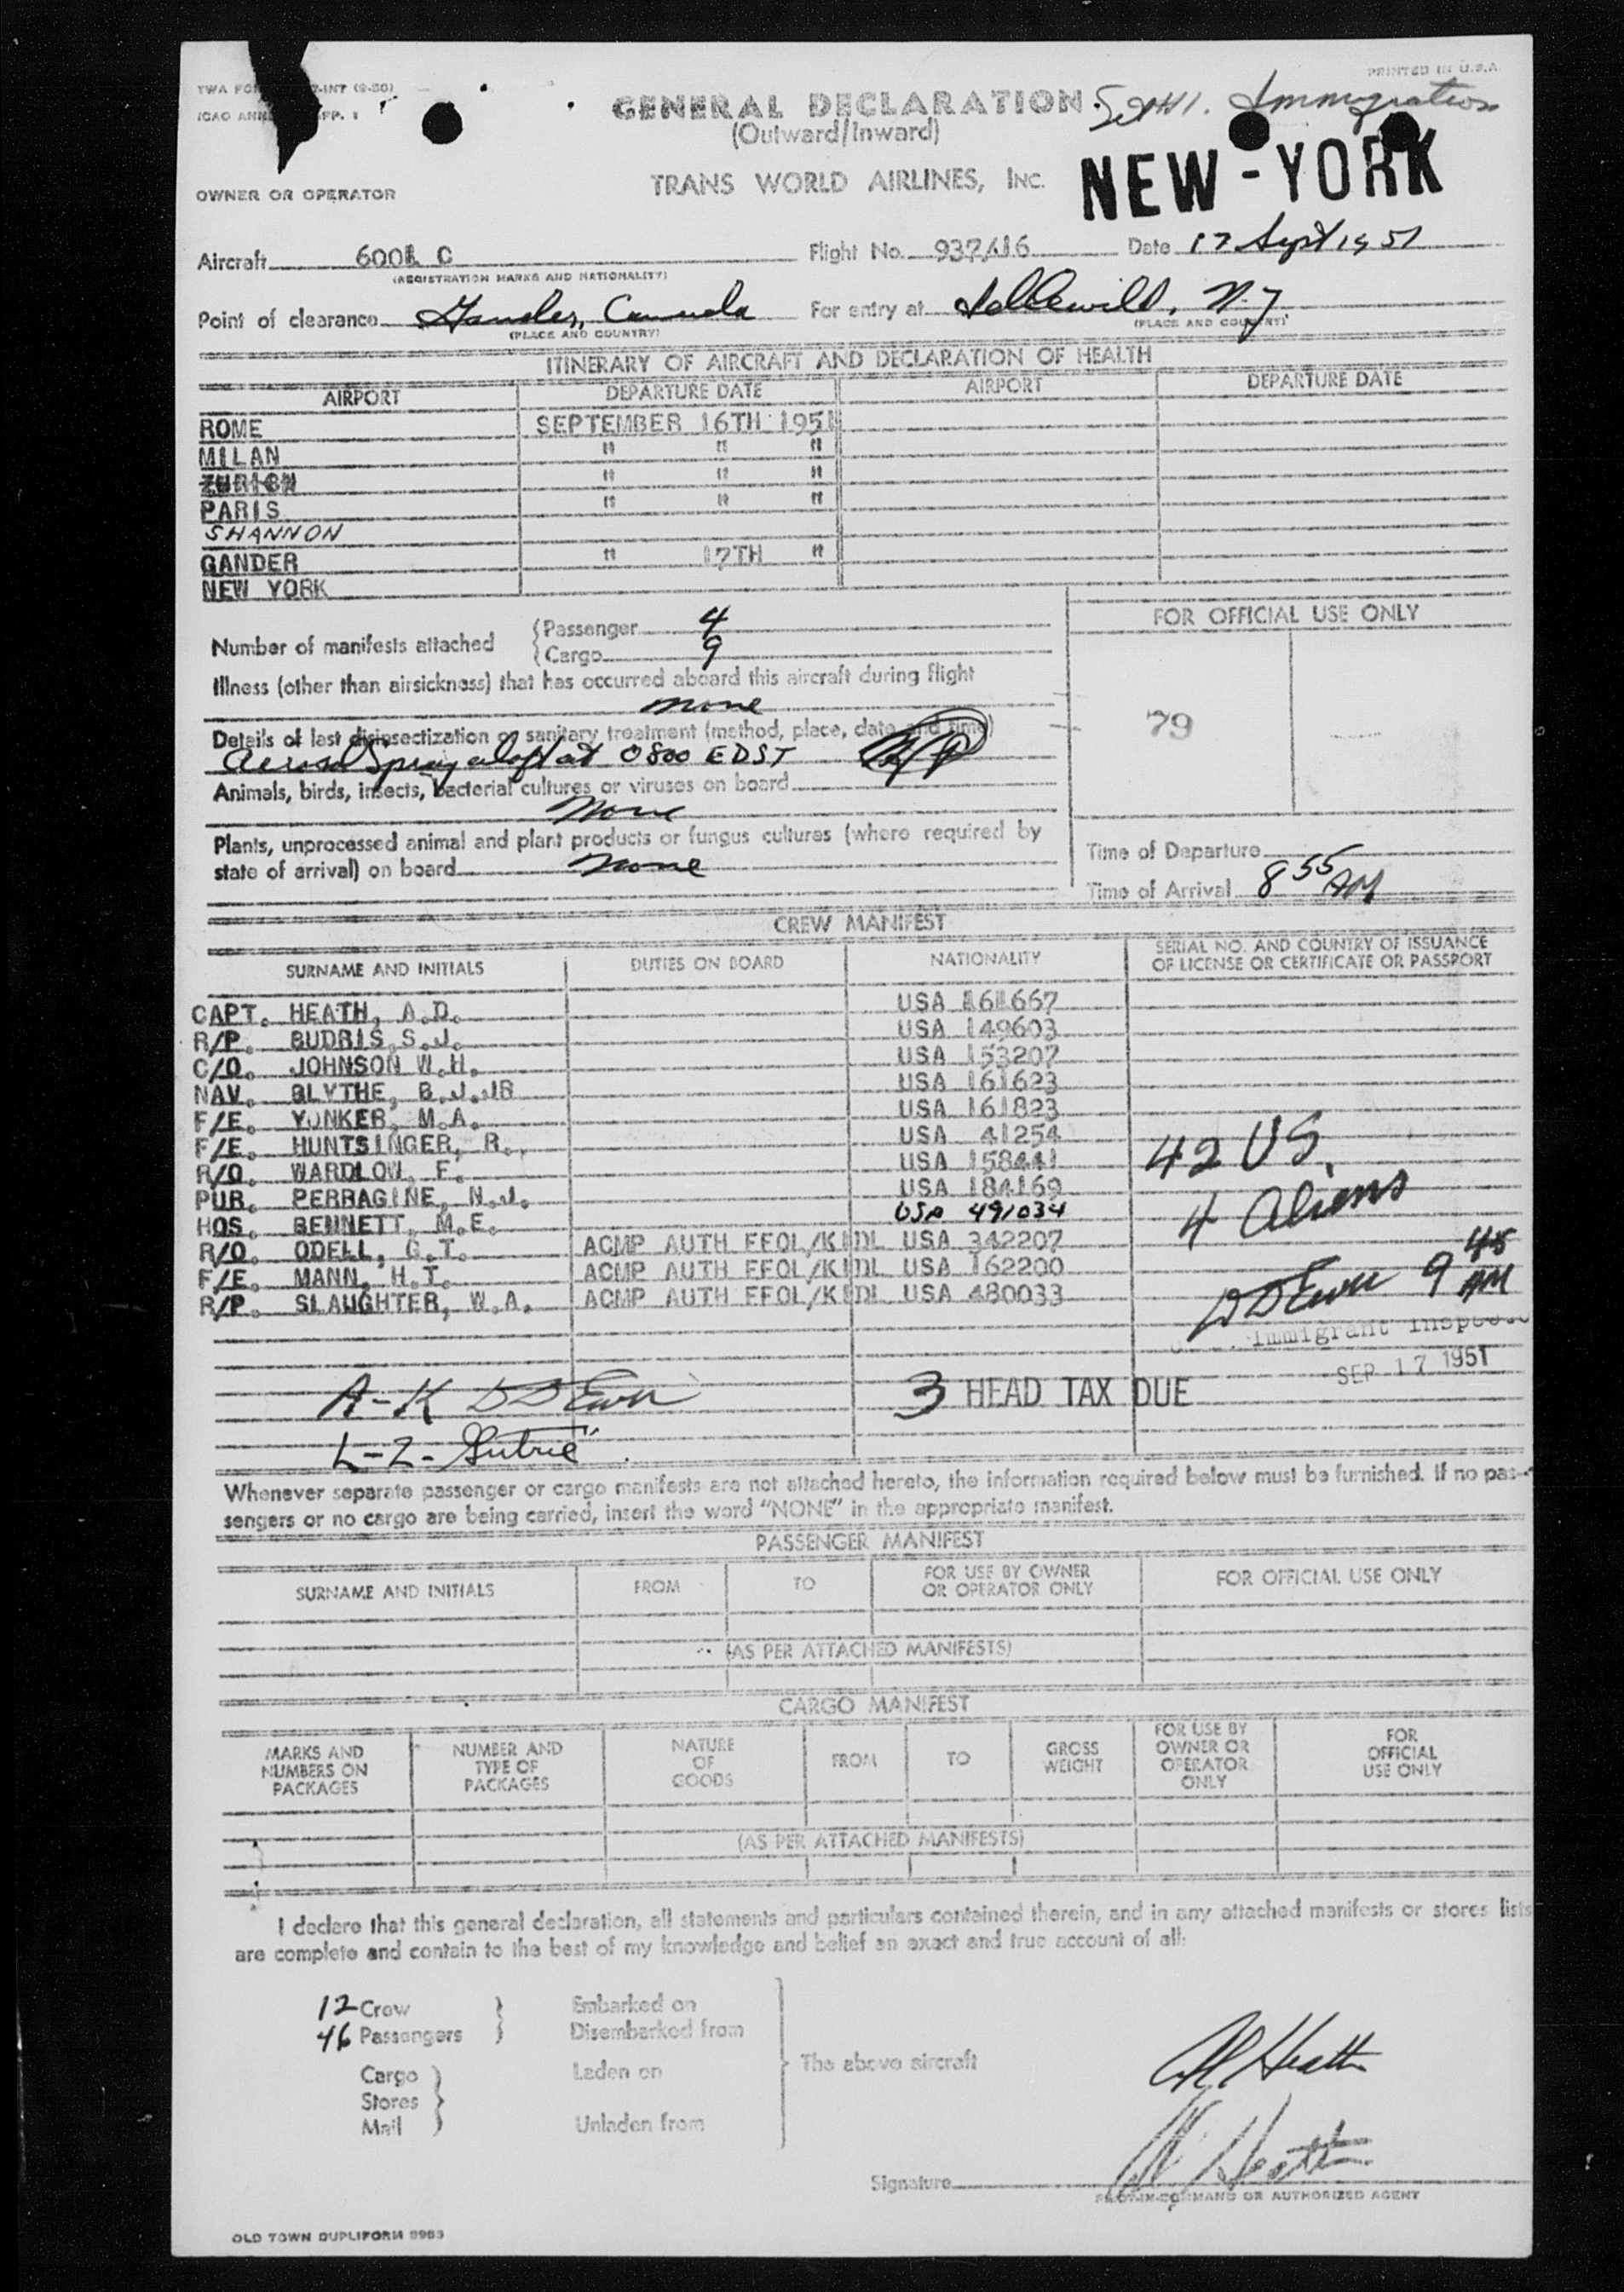 PRINTED IN U.S.A
TWA FO -INT (9-50)
ICAO ANNE PP. 1
GENERAL DECLARATION
Immigration
(Outward/Inward)
OWNER OR OPERATOR
TRANS WORLD AIRLINES, INC.
NEW-YORK
Aircraft 600 C Flight No. 937/ 16 Date 17 Sept 1951
(REGISTRATION MARKS AND NATIONALITY)
Point of clearance Gander, Canada For entry at Idlewild, N.Y
(PLACE AND COUNTRY) (PLACE AND COUNTRY)
ITINERARY OF AIRCRAFT AND DECLARATION OF HEALTH
AIRPORT DEPARTURE DATE AIRPORT DEPARTURE DATE
ROME SEPTEMBER 16TH 1951
MILAN " " "
ZURICH " " "
PARIS " " "
SHANNON
GANDER " 17TH "
NEW YORK
FOR OFFICIAL USE ONLY
Number of manifests attached
Passenger 4
Cargo 9
Illness (other than airsickness) that has occurred aboard this aircraft during flight
none
Details of last disinsectization or sanitary treatment (method, place, date and time)
79
Aerosol Spray aloft at 0800 EDST
Animals, birds, insects, bacterial cultures or viruses on board
None
Plants, unprocessed animal and plant products or fungus cultures (where required by
state of arrival) on board none
Time of Departure
Time of Arrival 8 55 AM
CREW MANIFEST
SURNAME AND INITIALS DUTIES ON BOARD NATIONALITY SERIAL NO. AND COUNTRY OF ISSUANCE
OF LICENSE OR CERTIFICATE OR PASSPORT
CAPT. HEATH, A.D. USA 161667
R/P. BUDRIS, S.J. USA 149603
C/O. JOHNSON W.H. USA 153207
NAV. BLYTHE, B.J.JR USA 161623
F/E. YONKER, M.A. USA 161823
F/E. HUNTSINGER, R. USA 41254
R/O. WARDLOW, F. USA 158441
PUR. PERRAGINE, N.J. USA 184169
HOS. BENNETT, M.E. USA 491034
R/O. ODELL, G.T. ACMP AUTH EFOL/KIDL USA 342207
F/E. MANN, H.T. ACMP AUTH EFOL/KIDL USA 162200
R/P. SLAUGHTER, W.A. ACMP AUTH EFOL/KIDL USA 480033
42 US.
4 Aliens
DDEwu 9 45 AM
Immigrant Inspector
SEP 17 1951
A-K DD
3 HEAD TAX DUE
L-Z-
Whenever separate passenger or cargo manifests are not attached hereto, the information required below must be furnished. If no pas-
sengers or no cargo are being carried, insert the word "NONE" in the appropriate manifest.
PASSENGER MANIFEST
SURNAME AND INITIALS FROM TO FOR USE BY OWNER
OR OPERATOR ONLY FOR OFFICIAL USE ONLY
(AS PER ATTACHED MANIFESTS)
CARGO MANIFEST
MARKS AND
NUMBERS ON
PACKAGES
NUMBER AND
TYPE OF
PACKAGES
NATURE
OF
GOODS
FROM
TO
GROSS
WEIGHT
FOR USE BY
OWNER OR
OPERATOR
ONLY
FOR
OFFICIAL
USE ONLY
(AS PER ATTACHED MANIFESTS)
I declare that this general declaration, all statements and particulars contained therein, and in any attached manifests or stores lists
are complete and contain to the best of my knowledge and belief an exact and true account of all:
12 Crew Embarked on
46 Passengers Disembarked from
Cargo Laden on The above aircraft
Stores
Mail Unladen from
Heath
Heath
Signature
PILOT-IN-COMMAND OR AUTHORIZED AGENT
OLD TOWN DUPLIFORM 8983